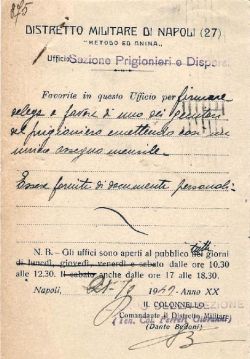 875
DISTRETTO MILITARE DI NAPOLI (27)
"METODO ED ANIMA"
Ufficio Sezione Prigionieri e Dispersi
Favorite in questo Ufficio per firmare
delega a favore di uno dei genitori
del prigioniero emettendo un
unico assegno mensile.
Essere forniti di documenti personali.
N. B. - Gli uffici sono aperti al pubblico tutti nei giorni
di lunedì, giovedì, venerdì e sabato dalle ore 10.30
alle 12.30. Il sabato anche dalle ore 17 alle 18.30.
Napoli, 1942 - Anno XX
IL COLONNELLO
Comandante il Distretto Militare
(Dante Bedoni)